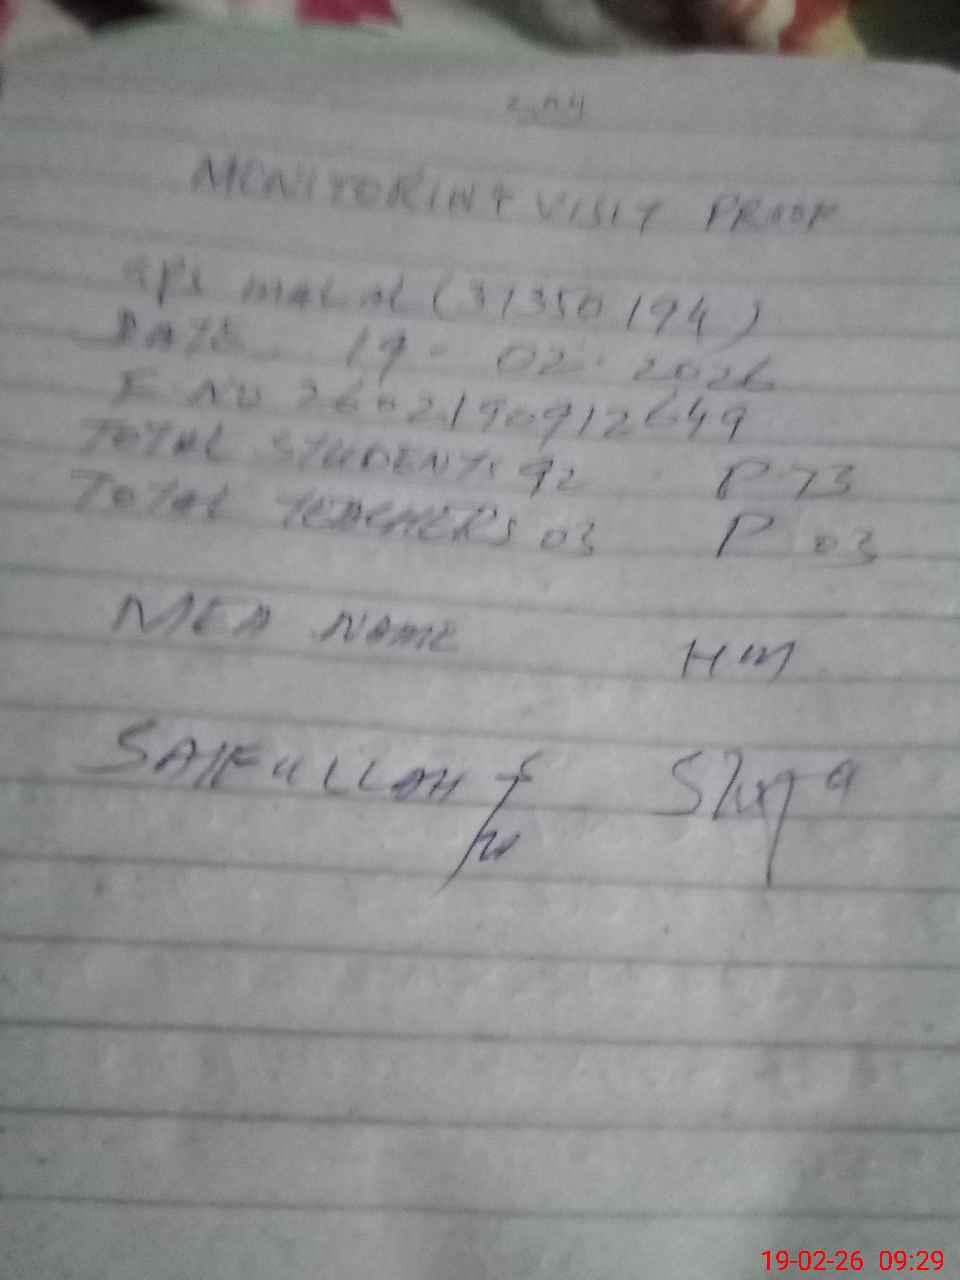 MONITORING VISIT PROOF
GPS MALAL (31350194)
DATE 19-02-2026
E NO 2602190912649
TOTAL STUDENTS 92 P 73
TOTAL TEACHERS 03 P 03
MEA NAME HM
SAIFULLAH
19-02-26 09:29